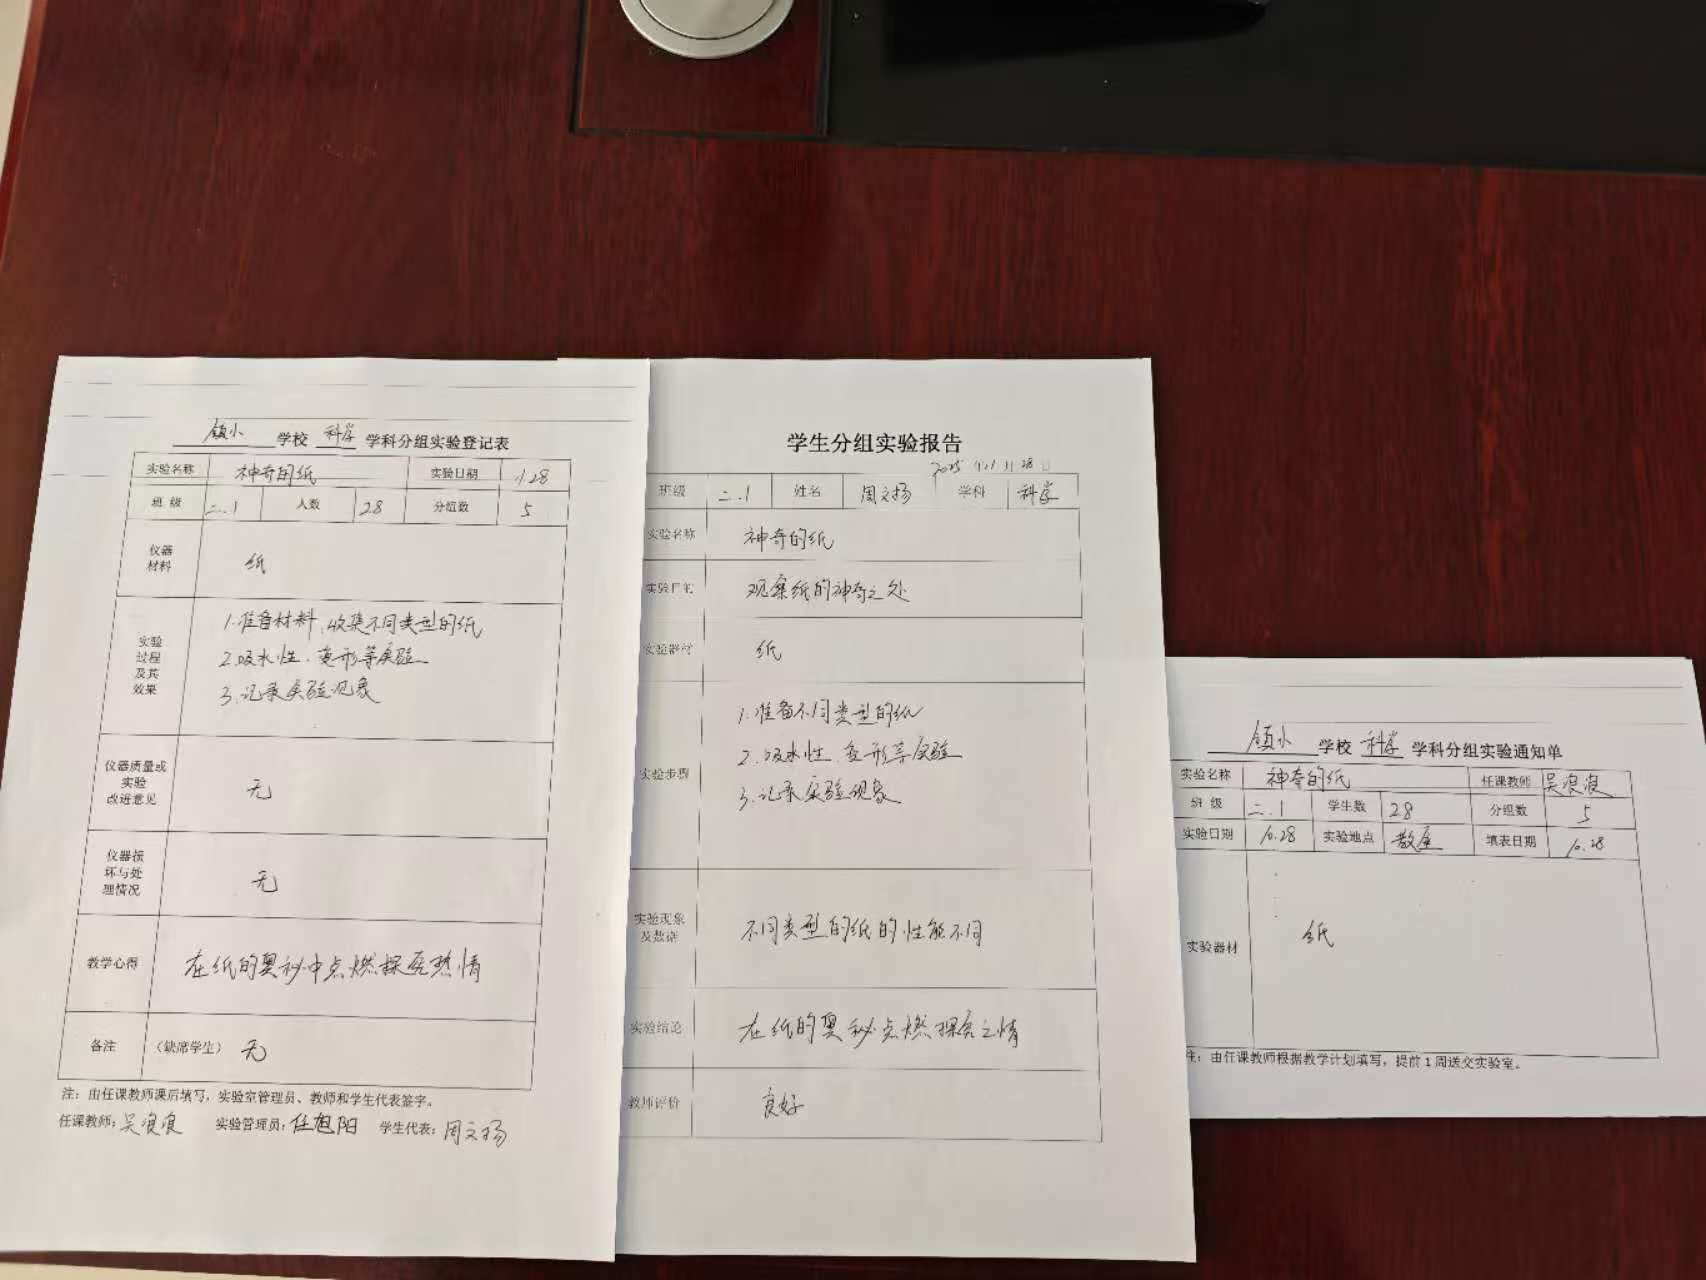 镇小 学校 科学 学科分组实验登记表
实验名称 神奇的纸 实验日期 11.28
班 级 二.1 人数 28 分组数 5
仪器材料 纸
实验过程及其效果
1.准备材料,收集不同类型的纸
2.吸水性、变形等实验
3.记录实验现象
仪器质量或实验改进意见 无
仪器损坏与处理情况 无
教学心得 在纸的奥秘中点燃探究热情
备注 (缺席学生) 无
注:由任课教师课后填写,实验室管理员、教师和学生代表签字。
任课教师:吴浪浪 实验管理员:任旭阳 学生代表:周文扬
学生分组实验报告
2025年11月28日
班级 二.1 姓名 周文扬 学科 科学
实验名称 神奇的纸
实验目的 观察纸的神奇之处
实验器材 纸
实验步骤
1.准备不同类型的纸
2.吸水性、变形等实验
3.记录实验现象
实验现象及数据 不同类型的纸的性能不同
实验结论 在纸的奥秘点燃探究之情
教师评价 良好
镇小 学校 科学 学科分组实验通知单
实验名称 神奇的纸 任课教师 吴浪浪
班 级 二.1 学生数 28 分组数 5
实验日期 10.28 实验地点 教室 填表日期 10.28
实验器材 纸
注:由任课教师根据教学计划填写,提前1周送交实验室。